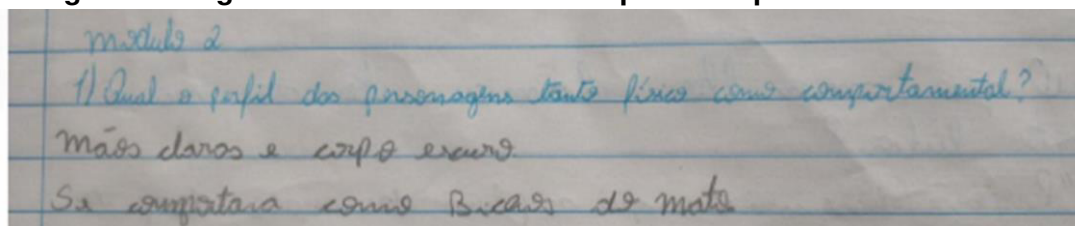 modulo 2
1) Qual o perfil dos personagens tanto físico como comportamental?
mãos claros e corpo escuro
Se comportava como Bicaos do mato